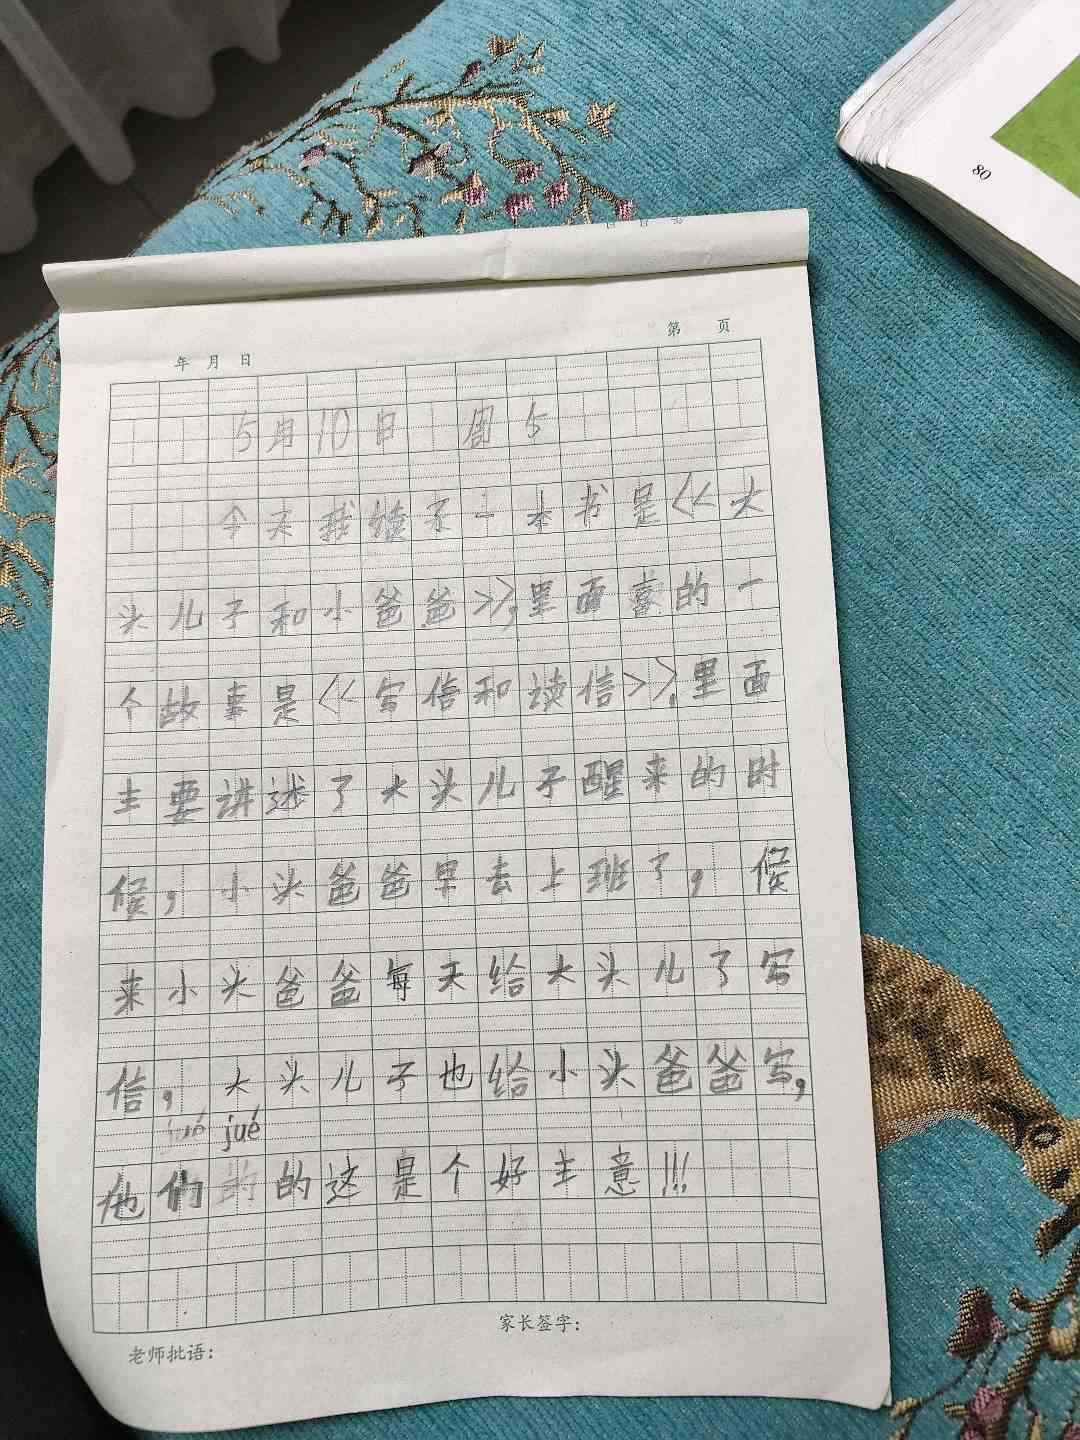 80
年 月 日 第 页
5月10日 周5
今天我读了一本书是《大
头儿子和小爸爸》,里面喜的一
个故事是《写信和读信》,里面
主要讲述了大头儿子醒来的时
候,小头爸爸早去上班了,候
来小头爸爸每天给大头儿了写
信,大头儿子也给小头爸爸写,
jué jué
他们的的这是个好主意!!!
家长签字:
老师批语: